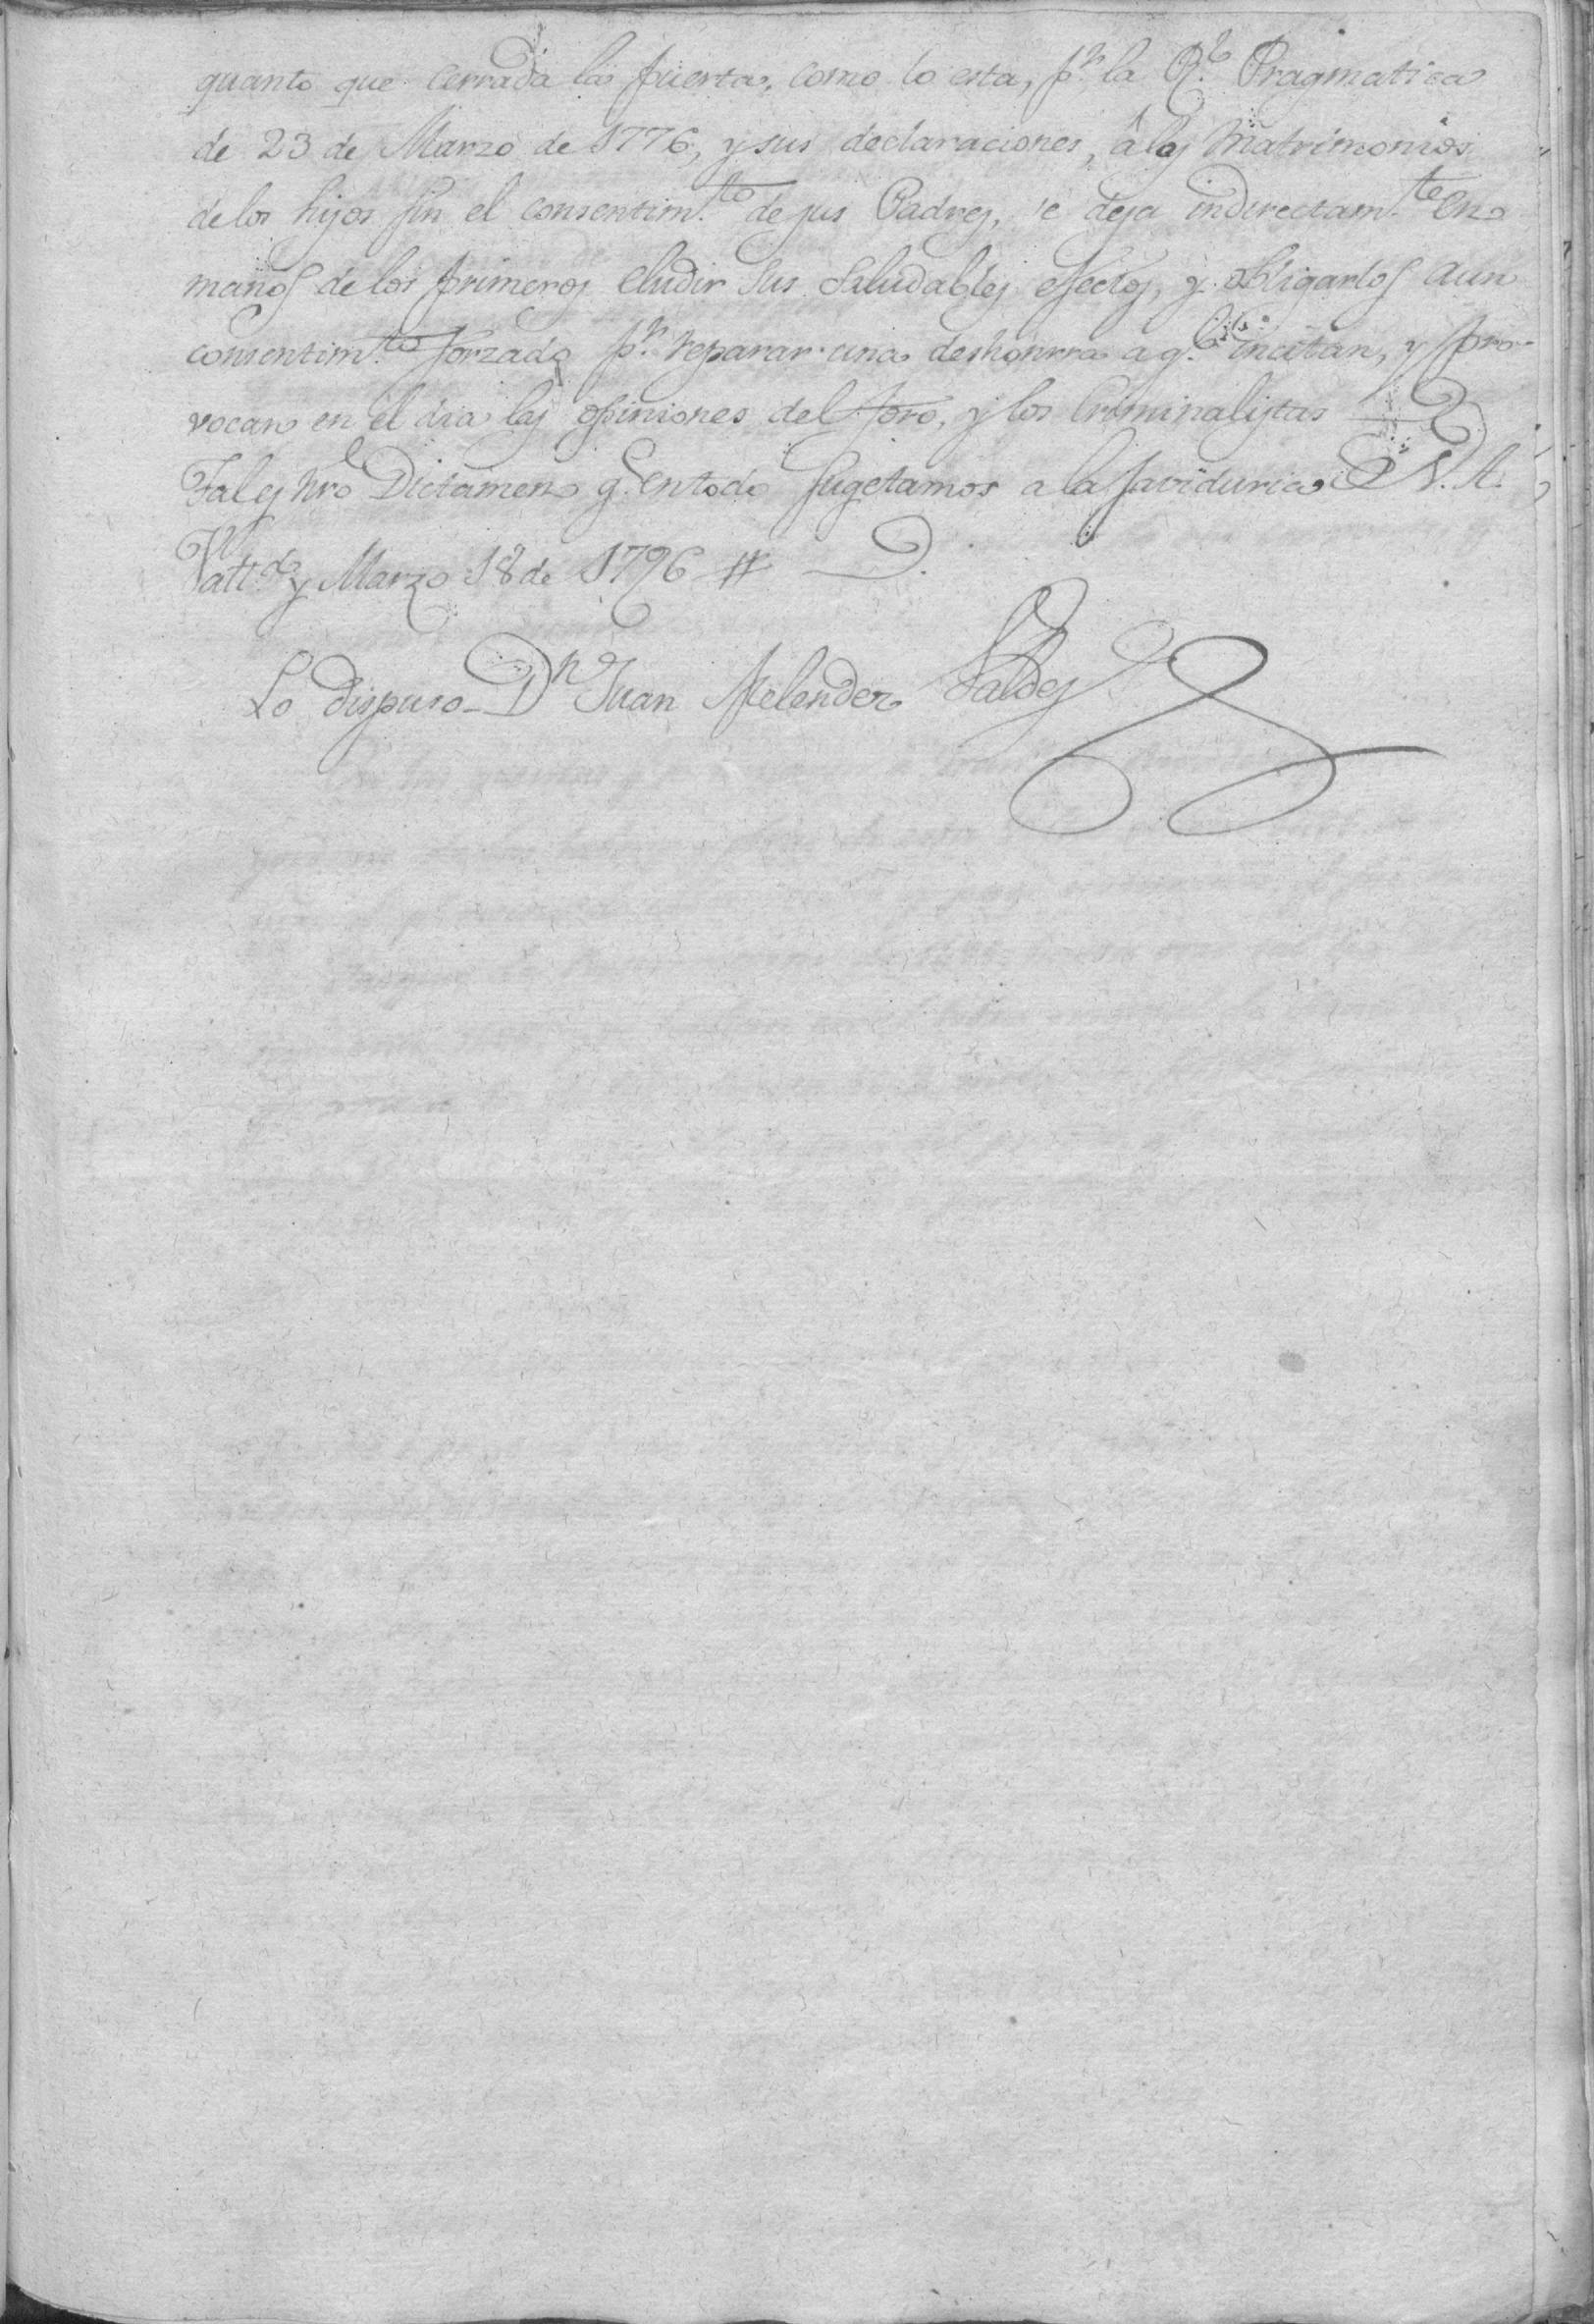 quanto que cerrada la puerta, como lo esta, p.r la R.l Pragmatica
de 23 de Marzo de 1776, y sus declaraciones, â los Matrimonios
de los hijos sin el consentim.to de sus Padres, se deja indirectam.te en
manos de los primeros eludir sus saludables efectos, y obligarlos aun
consentim.to forzado p.r reparar una deshonrra a q.e incitan, y pro-
vocan en el dia las opiniones del foro, y los Criminalistas
Tal es nr̃o Dictamen q.e en todo sugetamos a la saviduria de V. A.
Vall.d y Marzo 18 de 1796 #
Lo dispuso D.n Juan Melendez Valdes